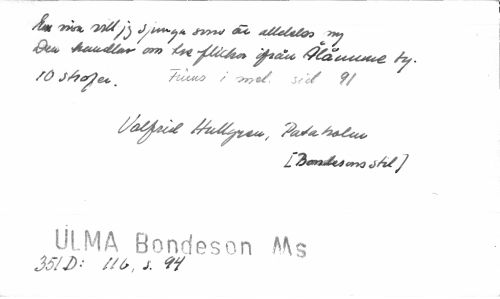 En visa vill jg sjunga som är alldeles ny
Den handlar om tre flickor ifrån Ålämme by.
10 strofer. Finns i mel. sid 91
Valfrid Hultgren, Pataholm
[Bondesons stil]
ULMA Bondeson Ms
351D: 116, s. 94